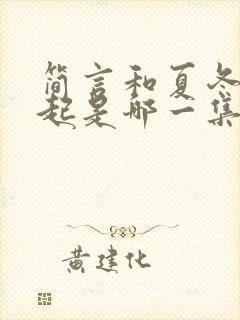 简言和夏冬
起是哪一集
黄建化